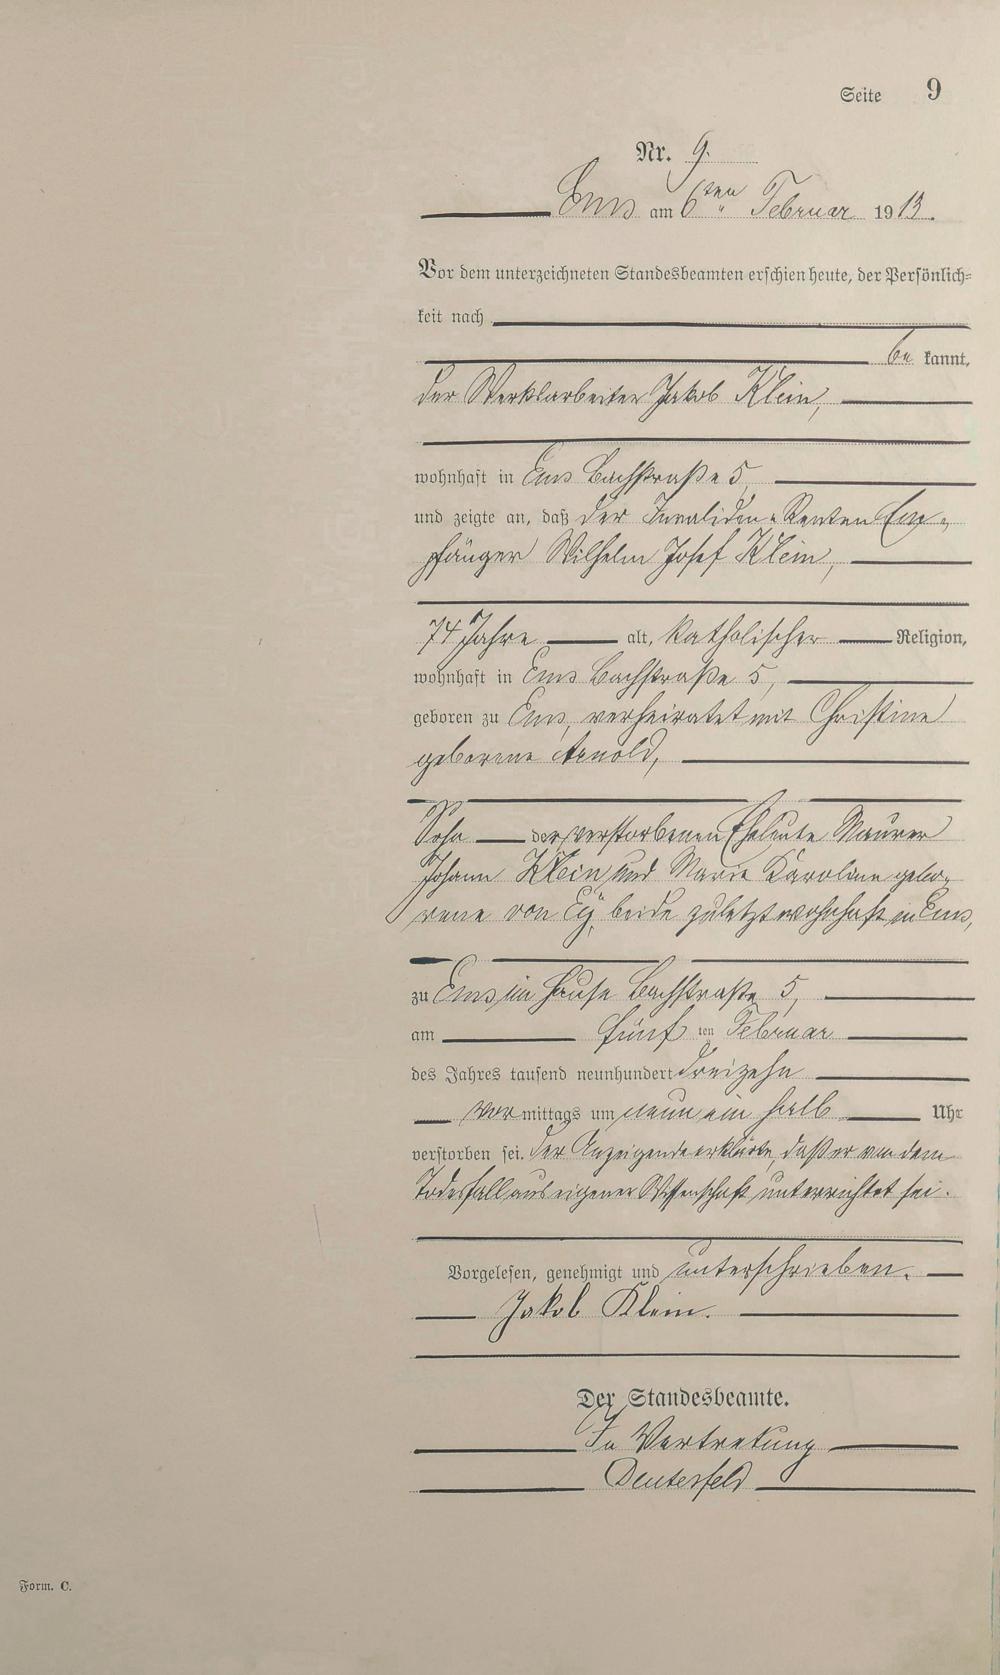 Seite 9
Nr. 9.
Ems am 6ten Februar 1913.
Vor dem unterzeichneten Standesbeamten erschien heute, der Persönlich=
keit nach
be kannt,
der Werksarbeiter Jakob Klein,
wohnhaft in Ems Bachstraße 5,
und zeigte an, daß der Invaliden=Renten Em=
pfänger Wilhelm Josef Klein,
74 Jahre alt, katholischer Religion,
wohnhaft in Ems Bachstraße 5,
geboren zu Ems, verheiratet mit Christine
geborene Arnold,
Sohn der verstorbenen Eheleute Maurer
Johann Klein und Marie Karoline gebo=
rene von Ey, beide zuletzt wohnhaft in Ems,
zu Ems im Hause Bachstraße 5,
am fünf ten Februar
des Jahres tausend neunhundert dreizehn
vor mittags um neun ein halb Uhr
verstorben sei. Der Anzeigende erklärte, daß er von dem
Todesfall aus eigener Wissenschaft unterrichtet sei.
Vorgelesen, genehmigt und unterschrieben.
Jakob Klein.
Der Standesbeamte.
In Vertretung
Form. C.